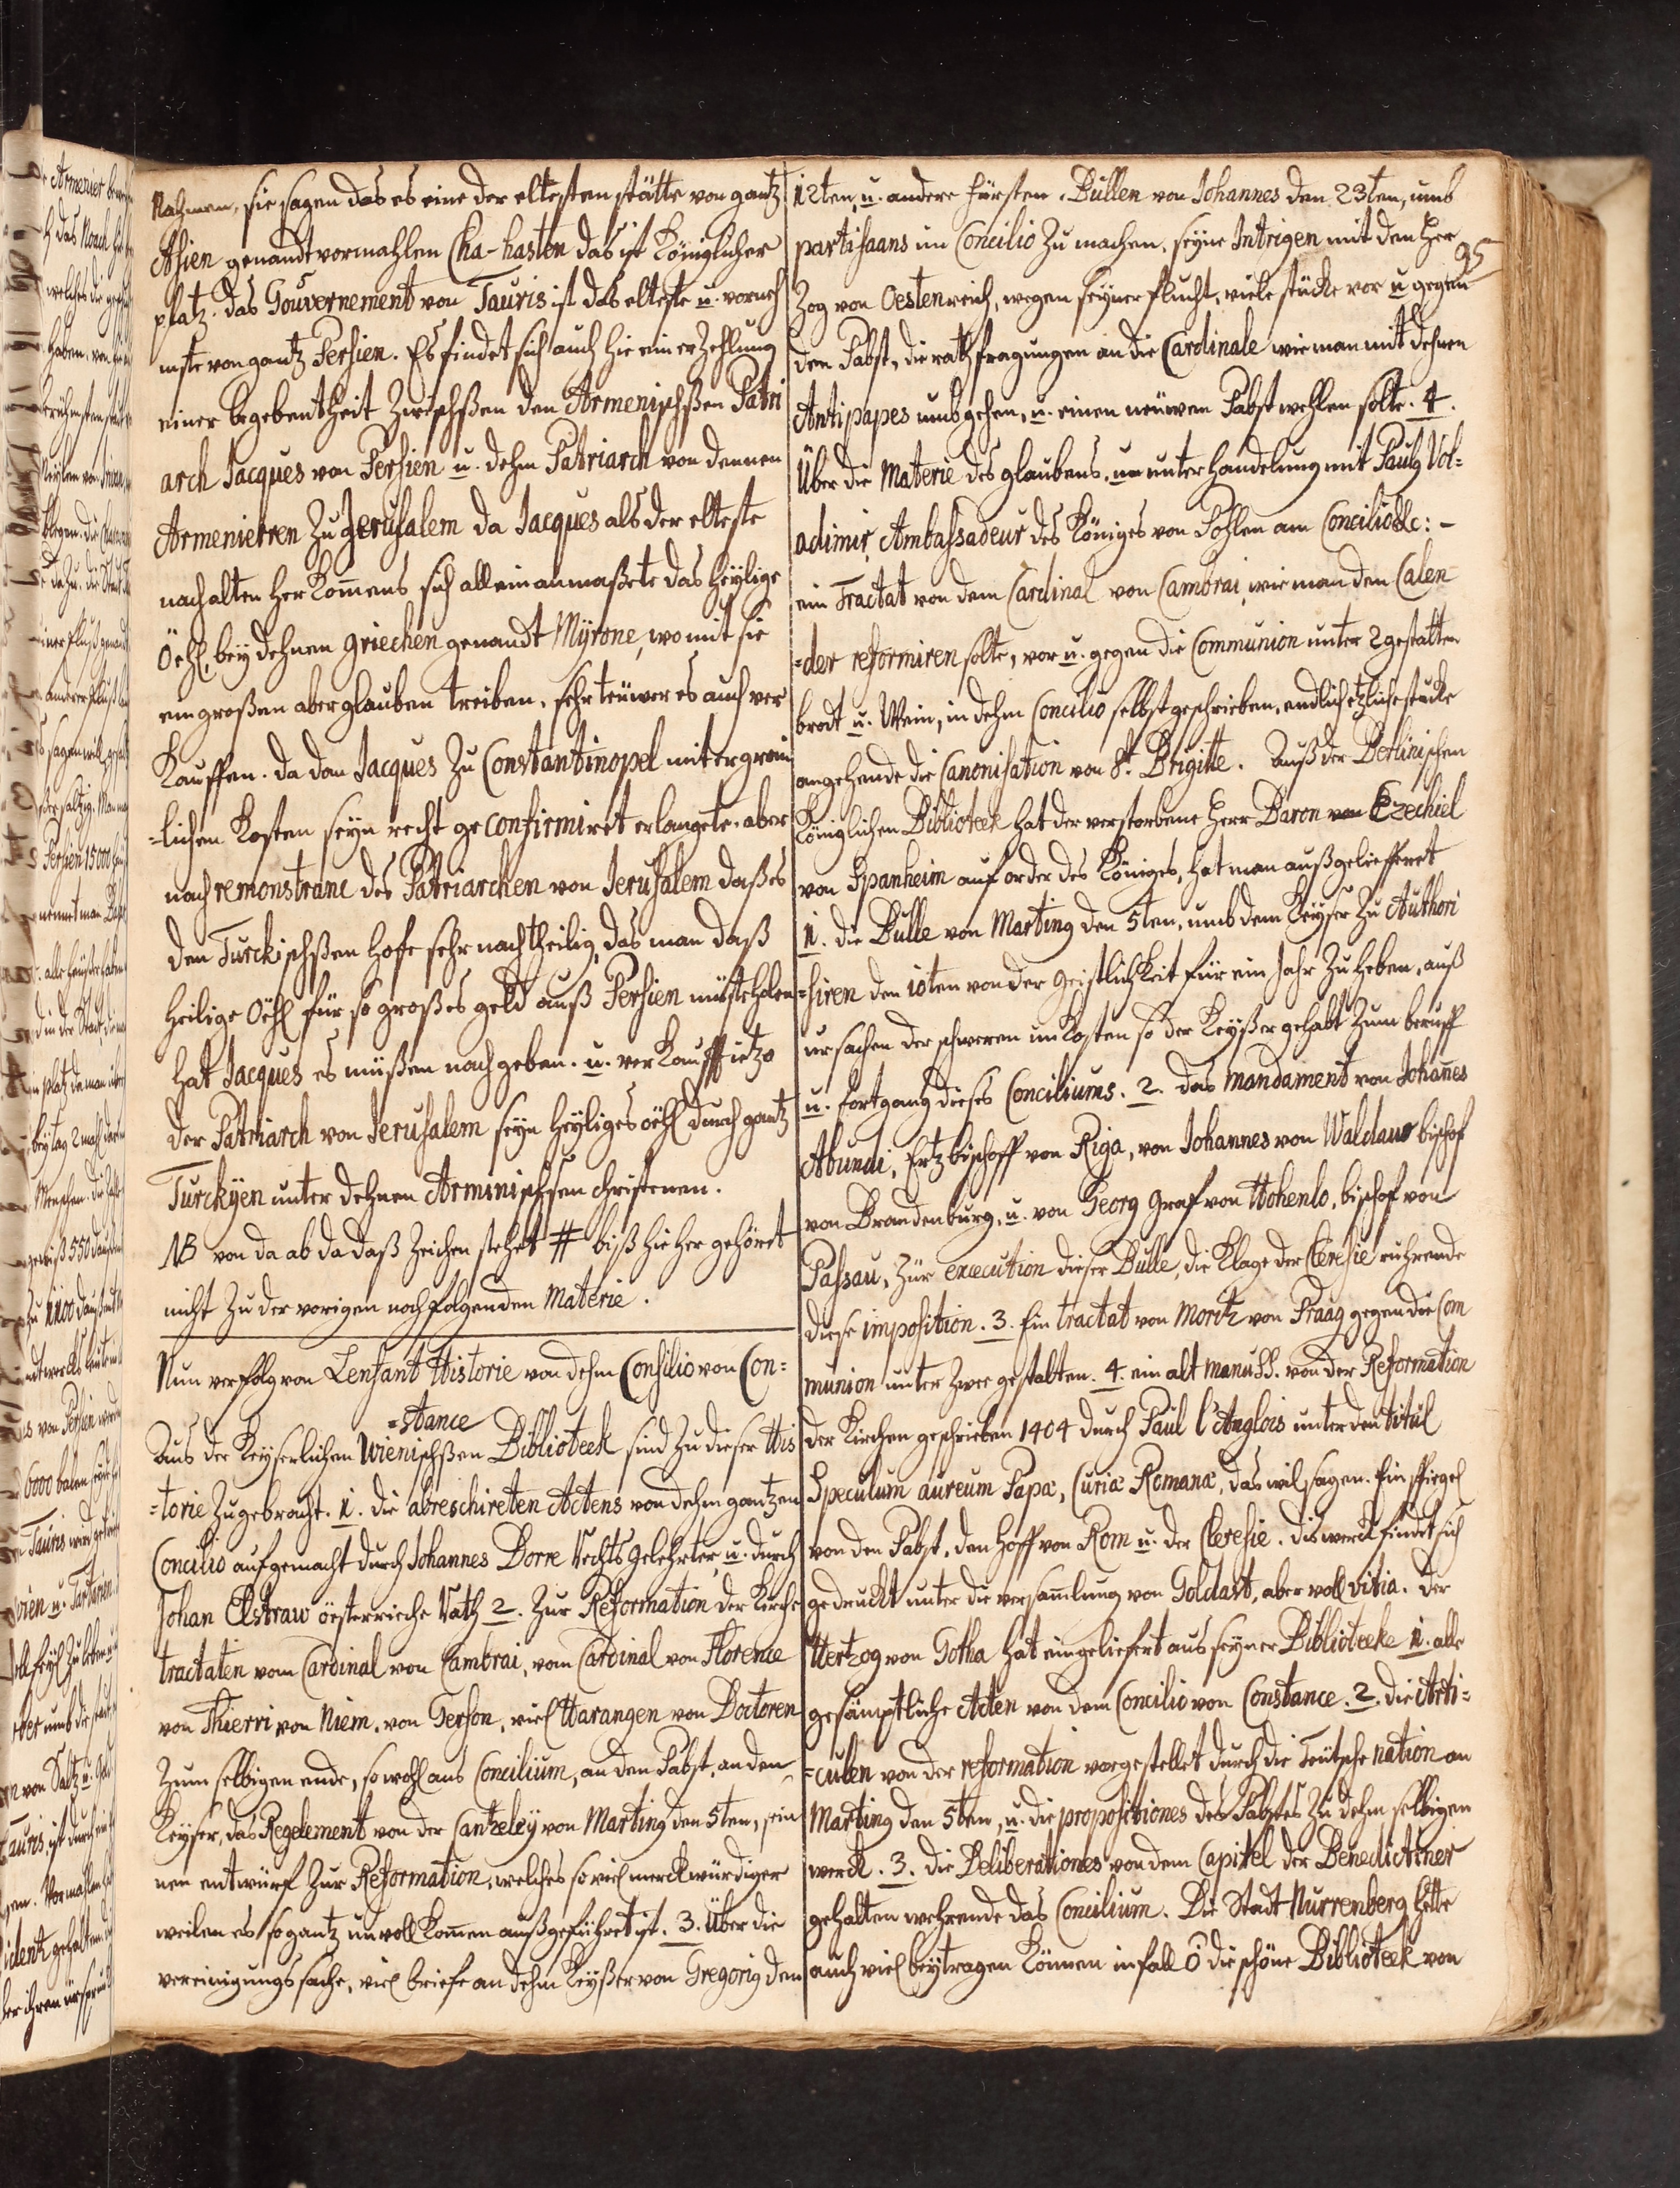 Nahmen, sie sagen das es eine der eltesten stätte von gantz
Asien genandt vormahlen Cha-hasten das ist Königlicher
platz. das Gouvernement von Tauris ist das elteste u. vorneh
mste von gantz Persien. Es findet sich auch hie ein erzehlung
einer begebentheit zwischßen den Armenischßen Patri
arch Jacques von Persien u. dehm Patriarch von dennen
Armenierren zu Jerusalem da Jacques als der elteste
nach alten herkom̄ens sich allein anmaßete das heylige
Öehl, bey dehnen griechen genandt Myrone, womit sie
ein großen aberglauben treiben, sehr teüwer es auch ver
kauffen. da dan Jacques zu Constantinopel mit
=lichen kosten seyn recht geconfirmiret erlangete. aber
nach remonstranc des Patriarchen von Jerusalem daß es
den Turckischßen hofe sehr nachtheilig, das man daß
heilige Oehl für so großes geld auß Persien müste holen
hat Jacques es müßen nachgeben. u. verkaufft ietzo
der Patriarch von Jerusalem seyn heyliges öehl durch gantz
Turckyen unter dehnen Arminischsen christenen.
NB von da ab da daß zeichen stehet # biß hie her gehöret
nicht zu der vorigen nochfolgenden Materie.
Nun verfolg von Lenfant Historie von dehm Consilio von Con=
=stance
Aus der Keyserlichen Wienischßen Biblioteek sind zu dieser His
=torie zugebracht. 1. die abreschireten Actens von dehm gantzen
Concilio aufgemacht durch Johannes Dorre Rechts gelehrter, u. durch
Johan Elstraw öesterrieche Rath 2. zur Reformation der Kirche
tractaten vom Cardinal von Cambrai, vom Cardinal von Florence
von Thierri von Niem. von Gerson, viel Harangen von Doctoren
zum selbigen ende, so wohl ans Concilium, an den Pabst, an den
Keyser, das Regelement von der Cantzeley von Marting den 5ten, sein
nen entwurf zur Reformation, welches so viel merckwürdiger
weilen es so gantz unvollkom̄en außgeführet ist. 3. Über die
vereinigungs sache, viel briefe an dehm Keyßer von Gregorig den
12ten, u. andere fürsten. Bullen von Johannes den 23ten, umb
partisaans im Concilio zu machen. seyne Intrigen mit den Her
95
zog von Oestenreich, wegen seyner flucht, viele stücke vor u. gegen
den Pabst, die rathfragungen an die Cardinale wie man mit dehnen
Antipapes umbgehen, u. einen neüwen Pabst wehlen solte. 4.
Über die Materie des glaubens, unterhandelung mit Paulg Vol=
adimir, Ambassadeur des Königes von Pohlen am Concilio &c: -
ein Tractat von dem Cardinal von Cambrai, wie man den Calen
=der reformiren solte, vor u. gegen die Communion unter 2 gestalten
brodt u. Wein, in dehm Concilio selbst geschrieben, endlich etzliche stücke
angehende die Canonisation von St. Brigitte. Auß der Berlinischen
Königlichen Biblioteek hat der verstorbene Herr Baron von Ezechiel
von Spanheim auf order des Königes, hat man außgeliefferet
1. die Bulle von Marting den 5ten, umb dem Keyser zu Authori
=siren den 10ten von der Geistlichkeit für ein Jahr zu heben, auß
ursachen der schweren unkosten so der Keyßer gehabt zum beruff
u. fortgang dieses Conciliums. 2. das mandament von Johan̄es
Abundi, Ertzbischoff von Riga, von Johannes von Waldauw bischof
von Brandenburg, u. von Georg Graf von Hohenlo, bischof von
Passau, zür execution dieser Bulle, die Klage der Cleresie ruhrende
diese imposition. 3. Ein tractat von Moritz von Praag gegen die Com
munion unter zwee gestalten. 4. ein alt manuss. von der Reformation
der Kirchen geschrieben 1404 durch Paul l'Anglois unter den titul
Speculum aureum Papæ, Curiæ Romanæ, das wil sagen. Ein spiegel
von den Pabst, den hoff von Rom u. der Cleresie. dis werck findet sich
gedruckt unter die versam̄lung von Goldast, aber voll vitia. der
Hertzog von Gotha hat eingeliefert aus seyner Biblioteeke 1. alle
gesämptliche Acten von dem Concilio von Constance. 2. die Arti=
=culen von der reformation vorgestellet durch die Teütsche nation an
Marting den 5ten, u. die propositiones des Pabstes zu dehm selbigen
werck. 3. die Deliberationes von dem Capitel der Benedictiner
gehalten wehrende das Concilium. Die Stadt Nurrenberg hette
auch viel beytragen können infall ô die schöne Biblioteek von